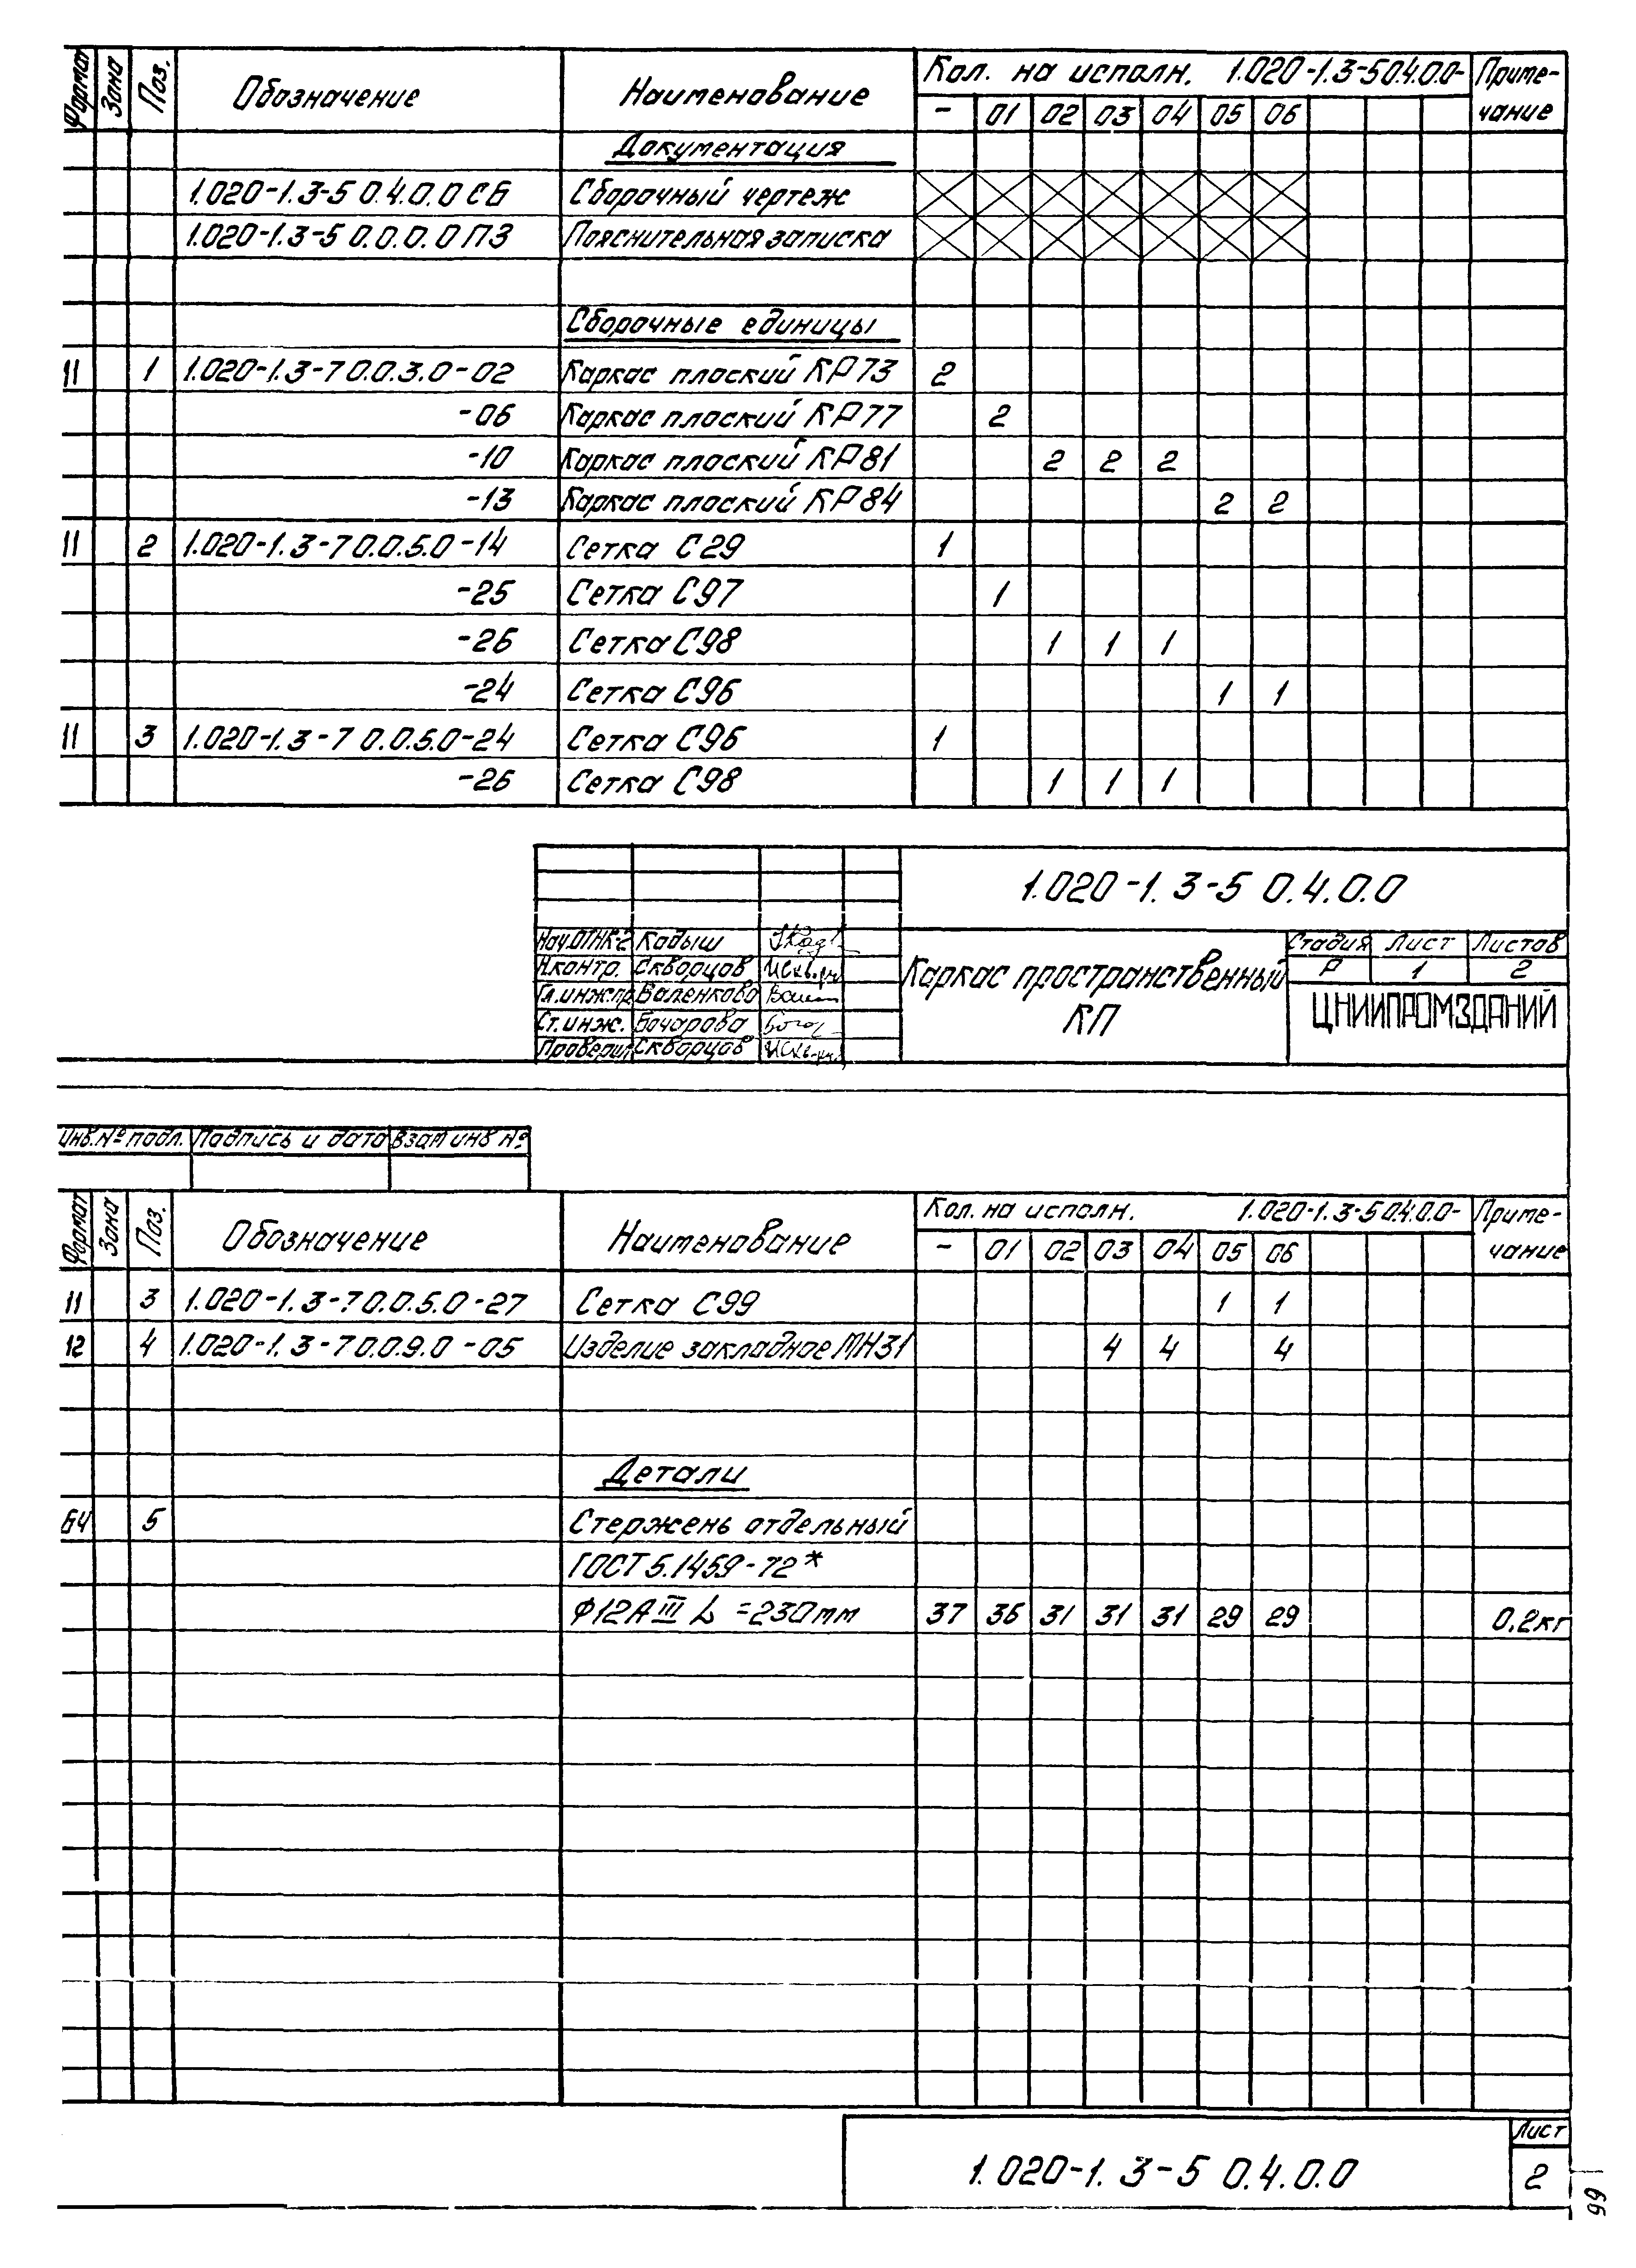 Формат Зона Поз. Обозначение Наименование Кол. на исполн. 1.020-1.3-5 0.4.0.0- Примечание
- 01 02 03 04 05 06
Документация
1.020-1.3-5 0.4.0.0 СБ Сборочный чертеж
1.020-1.3-5 0.0.0.0 ПЗ Пояснительная записка
Сборочные единицы
11 1 1.020-1.3-7 0.0.3.0-02 Каркас плоский КР73 2
-06 Каркас плоский КР77 2
-10 Каркас плоский КР81 2 2 2
-13 Каркас плоский КР84 2 2
11 2 1.020-1.3-7 0.0.5.0-14 Сетка С29 1
-25 Сетка С97 1
-26 Сетка С98 1 1 1
-24 Сетка С96 1 1
11 3 1.020-1.3-7 0.0.5.0-24 Сетка С96 1
-26 Сетка С98 1 1 1
1.020-1.3-5 0.4.0.0
Нач.ОТНК-2 Кадыш
Н.контр. Скворцов
Гл.инж.пр. Валенкова
Ст.инж. Бочарова
Проверил Скворцов
Каркас пространственный
КП
Стадия Лист Листов
Р 1 2
ЦНИИПРОМЗДАНИЙ
Инв.№ подл. Подпись и дата Взам инв №
Формат Зона Поз. Обозначение Наименование Кол. на исполн. 1.020-1.3-5 0.4.0.0- Примечание
- 01 02 03 04 05 06
11 3 1.020-1.3-7 0.0.5.0-27 Сетка С99 1 1
12 4 1.020-1.3-7 0.0.9.0-05 Изделие закладное МН31 4 4 4
Детали
БЧ 5 Стержень отдельный
ГОСТ 5.1459-72*
Ф12АIII L=230мм 37 36 31 31 31 29 29 0.2кг
1.020-1.3-5 0.4.0.0
Лист
2
66